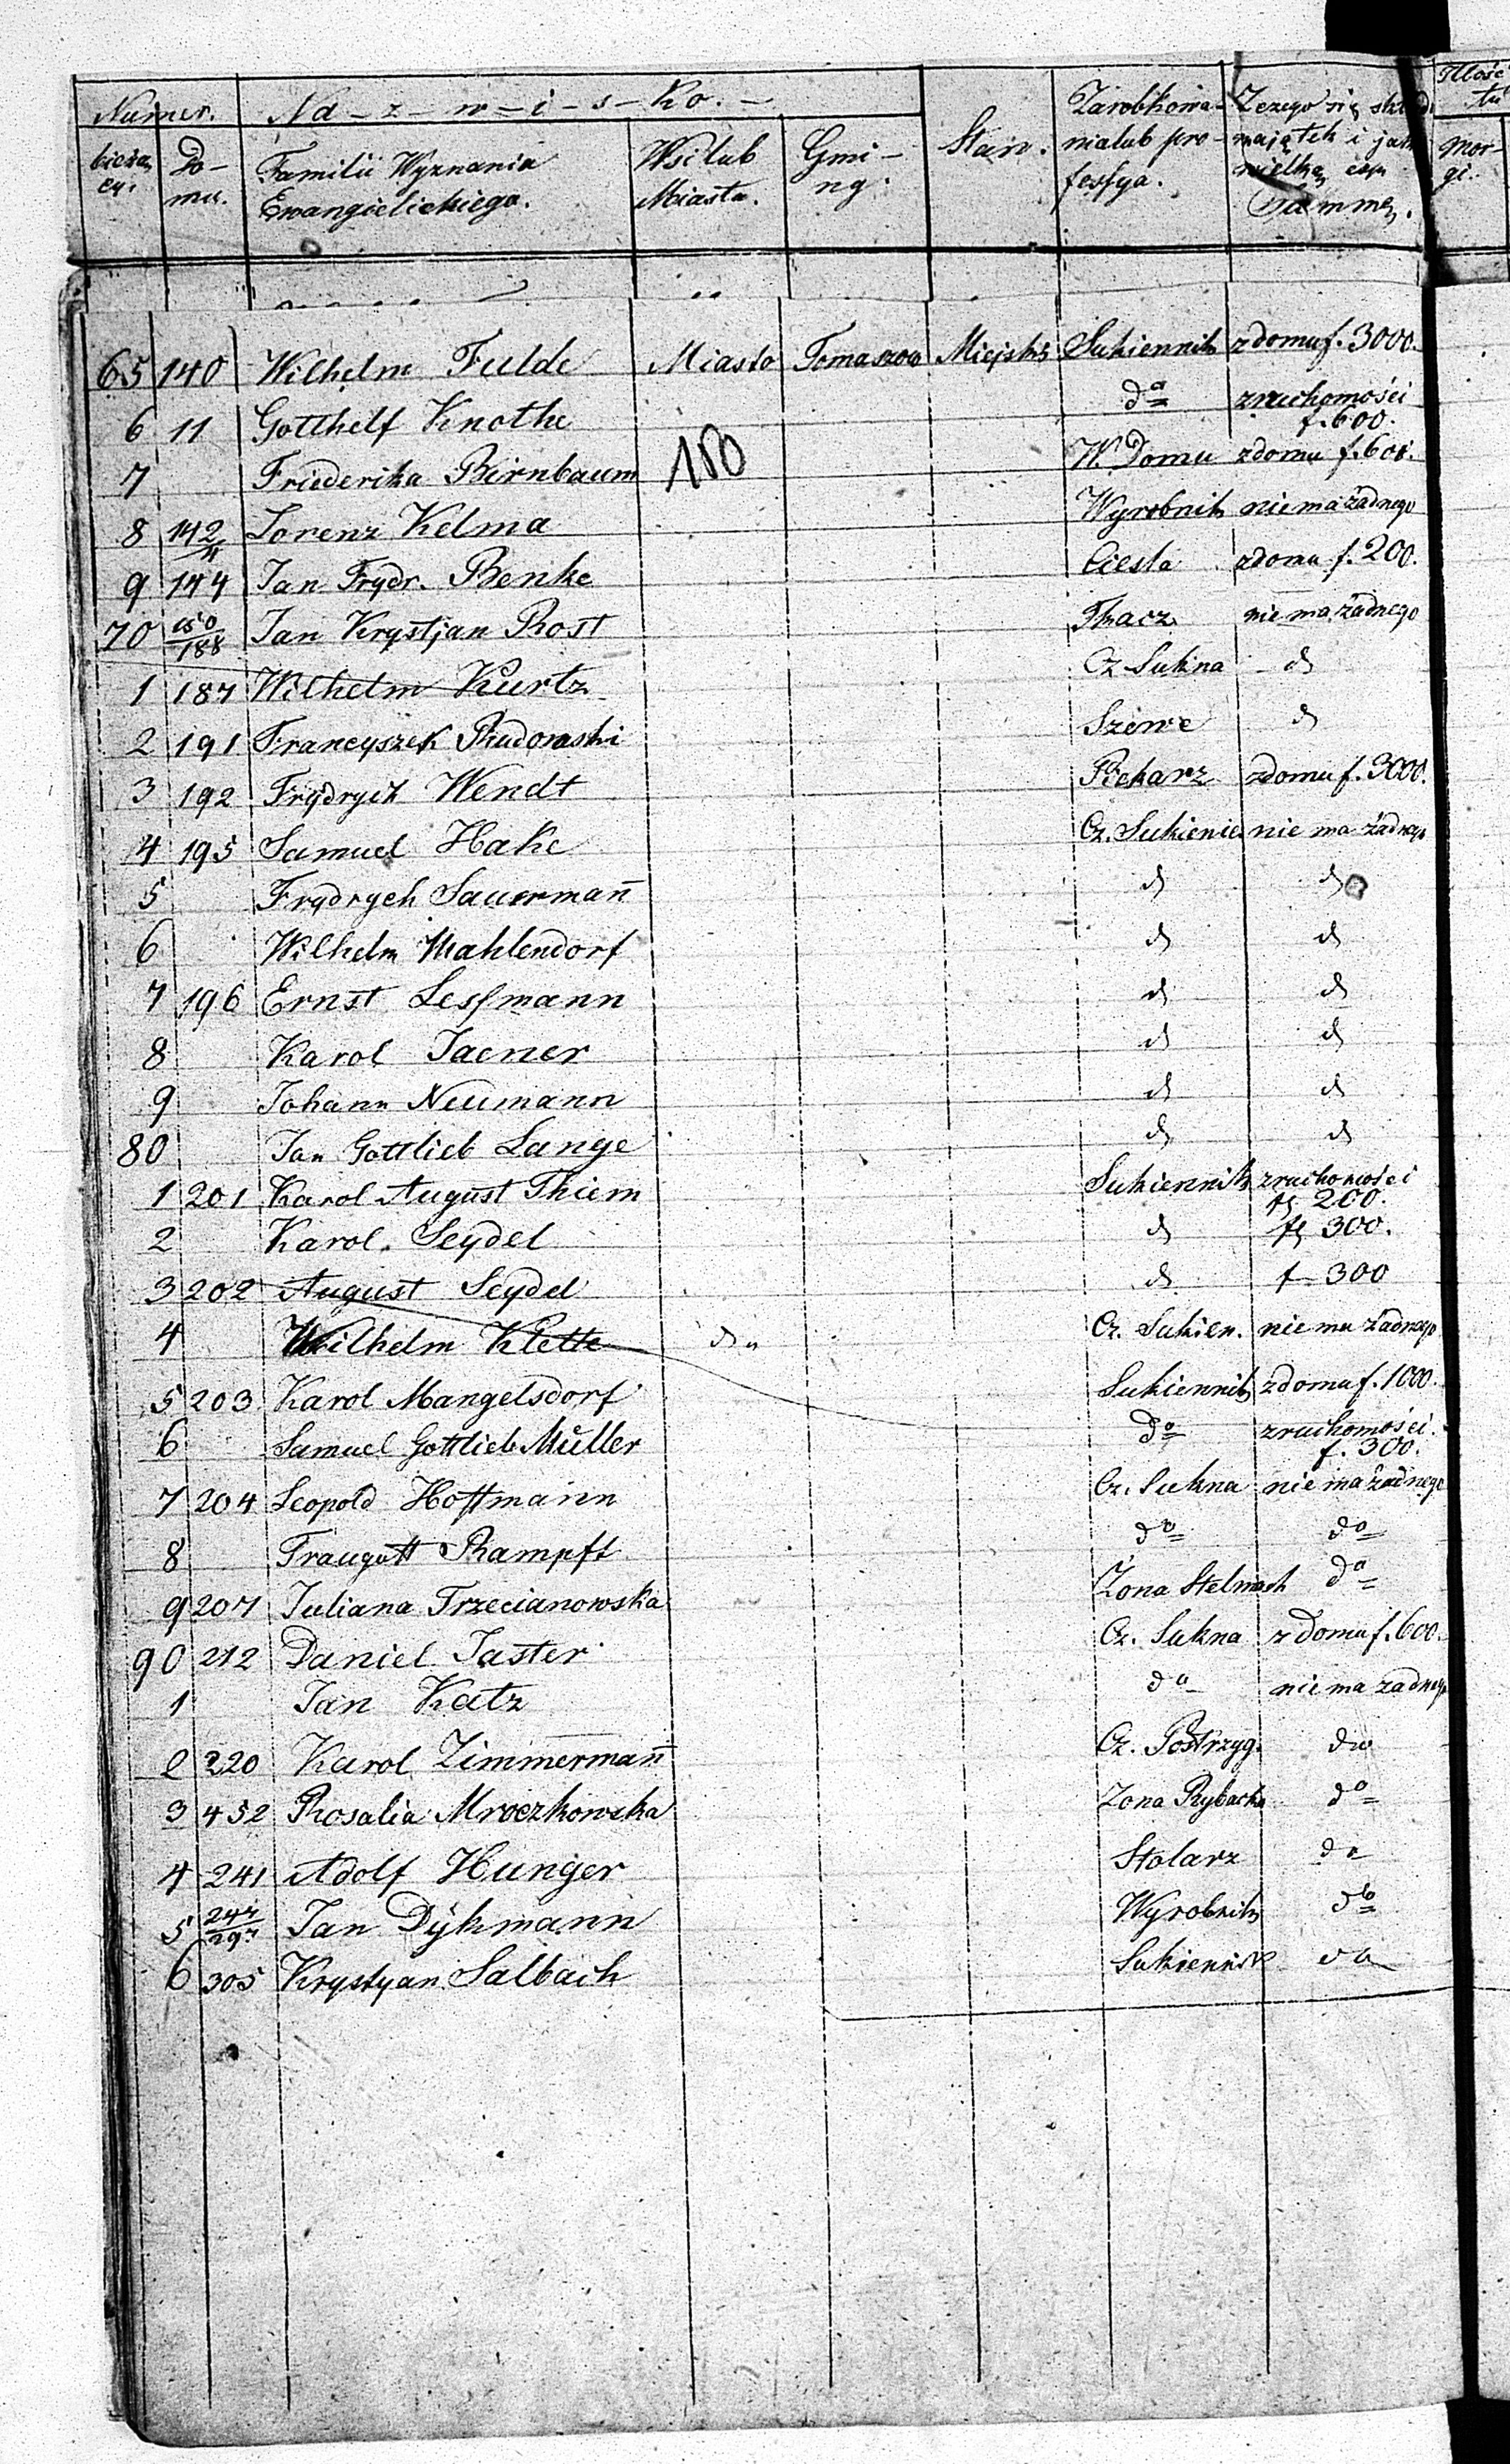 Numer. Na-z-w-i-s-ko.- Stan. Zarobkowa- Zczego się skład Ilość
bieżą Do- Familii Wyznania Wsi lub Gmi- nia lub pro- majątek i jak Mor-
cy. mu. Ewangielickiego. Miasta. ny. fesfya. wielką czyn gi.
Summę.
65 140 Wilhelm Fulde Miasto Tomaszow Miejski Sukiennik z domu f. 3000.
6 11 Gotthelf Knothe do z ruchomości
f. 600.
7 Friederika Birnbaum 180 W. Domu z domu f. 600.
8 142 Lorenz Kelma Wyrobnik nie ma żadnego
9 144 Jan Frydr. Benke Ciesla z domu f. 200.
70 150/188 Jan Krystjan Rost Tkacz nie ma żadnego
1 187 Wilhelm Kurtz Cz. Sukna d
2 191 Francyszek Rudowski Szewc d
3 192 Frydrych Wendt Piekarz z domu f. 3000.
4 195 Samuel Hake Cz. Sukienic nie ma żadnego
5 Frydrych Sauermañ d d
6 Wilhelm Mahlendorf d d
7 196 Ernst Lesfmann d d
8 Karol Jaener d d
9 Johann Neumann d d
80 Jan Gottlieb Lange d d
1 201 Karol August Thiem Sukiennik z ruchomości
f. 200.
2 Karol Seydel d f. 300.
3 202 August Seydel d f 300
4 Wilhelm Klette do Cz. Sukien. nie ma żadnego
5 203 Karol Mangelsdorf Sukiennik z domu f. 1000.
6 Samuel Gottlieb Müller do z ruchomości
f. 300.
7 204 Leopold Hoffmann Cz. Sukna nie ma żadnego
8 Traugott Rampft do do
9 207 Juliana Trzecianowska Żona Stelmach do
90 212 Daniel Jaster Cz. Sukna z domu f. 600.
1 Jan Katz do nie ma zadnego
2 220 Karol Zimmermañ Cz. Postrzyg. do
3 452 Rosalia Mroczkowska Zona Rybacka do
4 241 Adolf Hunger Stolarz do
5 247/297 Jan Dykmann Wyrobnik do
6 305 Krystyan Salbach Sukiennik do